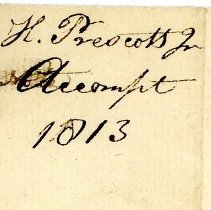 H. Prescott Jr
Accompt
1813